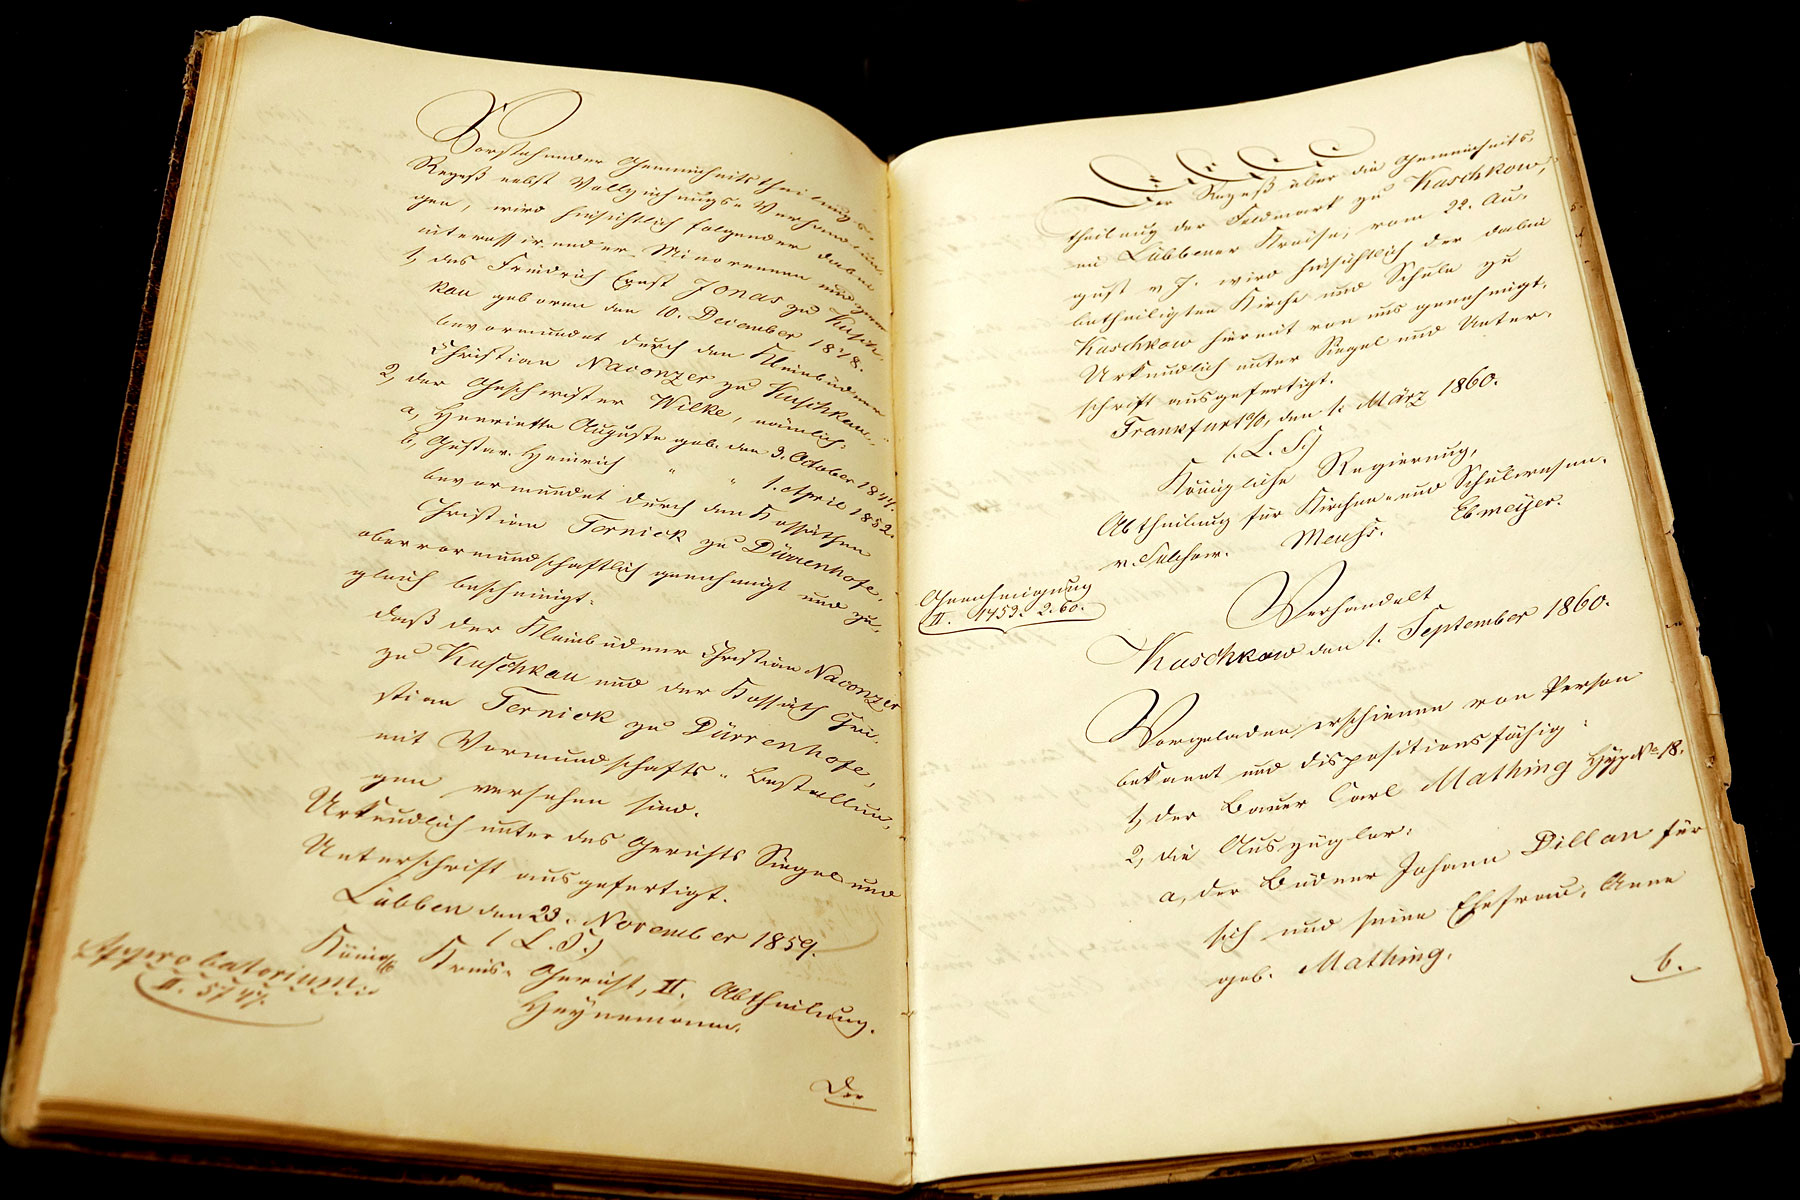 Vorstehender Gemeinheitstheilungs-
Rezeß nebst Vollziehungs-Verhandlun-
gen, wird hinsichtlich folgender dabei
interessirender Minorennen und zwar
1, des Friedrich Ernst Jonas zu Kusch-
kau geboren den 10. December 1848.
bevormundet durch den Kleinbüdner
Christian Naconzer zu Kuschkau.,
2, der Geschwister Wilke, nämlich:
a, Henriette Auguste geb. den 3. October 1844.
b, Gustav Heinrich " " 1. April 1852.
bevormundet durch den Kossäthen
Christian Ternick zu Dürrenhofe,
obervormundschaftlich genehmigt und zu-
gleich bescheinigt:
daß der Kleinbüdner Christian Naconzer
zu Kuschkau und der Kossäth Chri-
stian Ternick zu Dürrenhofe,
mit Vormundschafts-Bestellun-
gen versehen sind.
Urkundlich unter des Gerichts Siegel und
Unterschrift ausgefertigt.
Lübben den 23. November 1859.
(L. S.)
Königl. Kreis-Gericht, II. Abtheilung.
Heynemann.
Approbatorium
II. 5747.
Der
Der Rezeß über die Gemeinheits-
theilung der Feldmark zu Kuschkow,
im Lübbener Kreise, vom 22. Au-
gust v J. wird hinsichtlich der dabei
betheiligten Kirche und Schule zu
Kuschkow hiermit von uns genehmigt.
Urkundlich unter Siegel und Unter-
schrift ausgefertigt.
Frankfurt a/o, den 1. März 1860.
(L. S.)
Königliche Regierung,
Abtheilung für Kirchen- und Schulwesen.
v. Selchow. Meuhs. Ebmeyer.
Genehmigung
II. 1453. 2. 60.
Verhandelt
Kuschkow den 1. September 1860.
Vorgeladen erschienen von Person
bekannt und dispositionsfähig:
1, der Bauer Carl Mathing Hyp No 18.
2, die Auszügler:
a, der Büdner Johann Dillan für
sich und seine Ehefrau, Anne
geb. Mathing.
b.